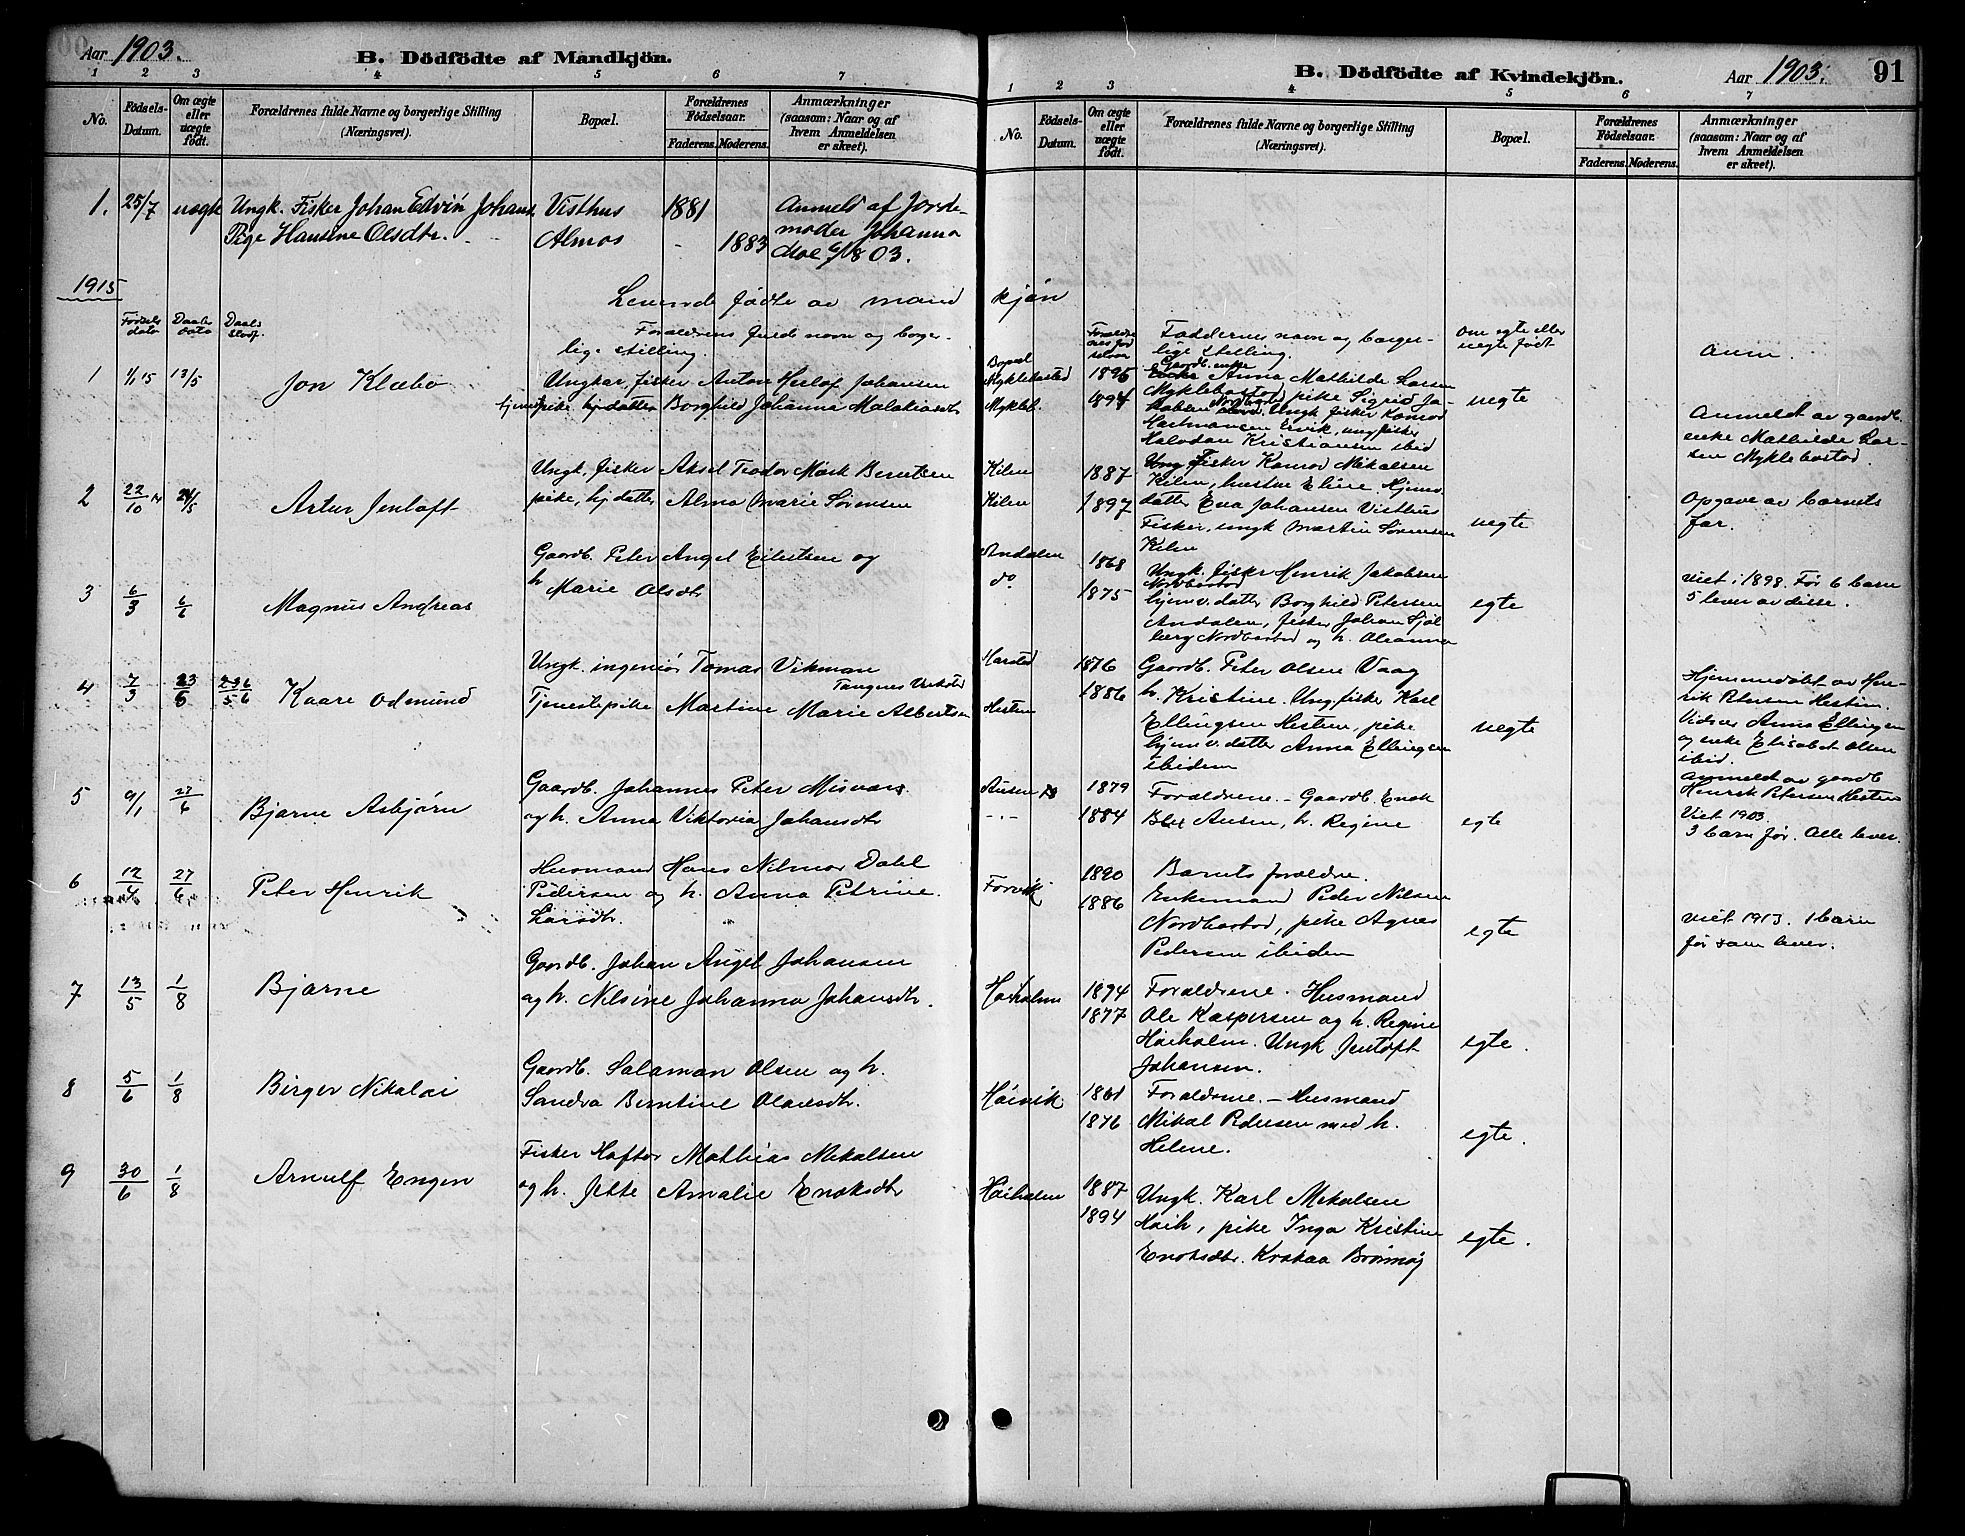 Aar 1903.
B. Dödfödte af Mandkjön.
1 2 3 4 5 6 7
No.
Födsels-Datum.
Om ægte eller uægte födt.
Forældrenes fulde Navne og borgerlige Stilling (Næringsvei).
Bopæl.
Forældrenes Födselsaar.
Faderens. Moderens.
Anmærkninger (saasom: Naar og af hvem Anmeldelsen er skeet).
1. 25/7 uægte Ungk. Fisker Johan Edvin Johans. Visthus 1881 Anmeld af Jorde-
Pige Hansine Olsdtr. Almos 1883 moder Johanna
Moe 03.
1915
Levende fødte av mand
Fødsels dato Daabs dato Daab
Forældrens fulde navn og borger-
lige stilling.
1 1/1 15 13/5 Jon Klæbo
Ungkar, fisker Anton Herlof Johansen
pike hj.datter Borghild Johanna Malakiasdtr
2 22/10 14 24/5 Artur Jentoft
Ungk, fisker Aksel Teodor Mørk Berntsen
pike, hj.datter Alma Marie Sørensen
3 6/3 6/6 Magnus Andreas
Gaardb. Peter Angel Eilertsen og
h Marie Olsdtr
4 7/3 23/6 Kaare Odmund
Ungk. ingeniør Tomas Vikman
Tjenestepike Martine Marie Albertsen
5 9/1 27/6 Bjarne Asbjørn
Gaardb. Johannes Peter Misvær
og h. Anna Viktoria Johansdtr
6 12/4 27/6 Peter Henrik
Husmand Hans Nilmor Dahl
Pedersen og h. Anna Petrine
Larsdtr.
7 13/5 1/8 Bjarne
Gaardb. Johan Angel Johansen
og h. Nilsine Johanna Johansdtr.
8 5/6 1/8 Birger Nikolai
Gaardb. Salamon Olsen og h.
Sandra Berntine Olausdtr.
9 30/6 1/8 Arnulf Engen
Fisker Haftor Mathias Mikalsen
og h. Jette Amalie Enoksdtr
B. Dödfödte af Kvindekjön.
Aar 1903.
91
1 2 3 4 5 6 7
No.
Födsels-Datum.
Om ægte eller uægte födt.
Forældrenes fulde Navne og borgerlige Stilling (Næringsvei).
Bopæl.
Forældrenes Födselsaar.
Faderens. Moderens.
Anmærkninger (saasom: Naar og af hvem Anmeldelsen er skeet).
kjøn
Bopæl
Faddernes navn og borger-
lige stilling.
om egte eller
uegte født
Anm.
Myklebostad 1895 Gaardb. enke Anna Mathilde Larsen
Myklb. 1894 Myklebostad, pike Sigrid Ja-
kobsen Ungk. fisker Konrad
Hartmansen Ervik, ung fisker
Halvdan Kristiansen ibid
uegte
Anmeldt av gaardb.
enke Mathilde Lar-
sen Myklebostad.
Kilen 1887 Ung fisker Konrad Mikalsen
Kilen 1897 Kilen, hustru Eline. Hjemv.
datter Eva Johansen Visthus
Fisker, ungk Martin Sørensen
Kilen
uegte
Opgave av barnets
far.
Andalen 1868 Ungk. fisker Henrik Jakobsen
do 1875 Nordbostad
hjemv. datter Borghild Petersen
Andalen, fisker Johan Sjøl
berg Nordbostad og h. Oleanna
egte
viet i 1898. Før 6 barn
5 lever av disse.
Harstad 1876 Gaardb. Peter Olsen Vaag
Hesten 1886 h. Kristine. Ung fisker Karl
Ellingsen Hesten, pike
hjemv. datter Anna Ellingsen
ibidem
uegte
Hjemmedøbt av Hen-
rik Petersen Hesten.
Vidner Anna Ellingsen
og enke Elisabet Olsen
ibid.
Anmeldt av gaardb
Henrik Petersen Hesten
Ausen 1879 Forældrene. - Gaardb. Enok
-"- 1884 Ausen, h. Regine
egte
Viet 1903.
3 barn før. Alle lever.
Forvik 1890 Barnets forældre.
1886 Enkemand Peder Nilsen
Nordbostad, pike Agnes
Pedersen ibidem
egte
viet 1913. 1 barn
før som lever.
Høiholm 1874 Forældrene. Husmand
1877 Ole Kaspersen og h. Regine
Høiholm. Ungk Jentoft
Johansen.
egte.
Høivik 1861 Forældrene. - Husmand
1876 Mikal Pedersen med h.
Helene.
egte.
Høiholm 1887 Ungk. Karl Mikalsen
1894 Høih, pike Inga Kristine
Enoksdtr. Krakaa Brønnøy
egte.